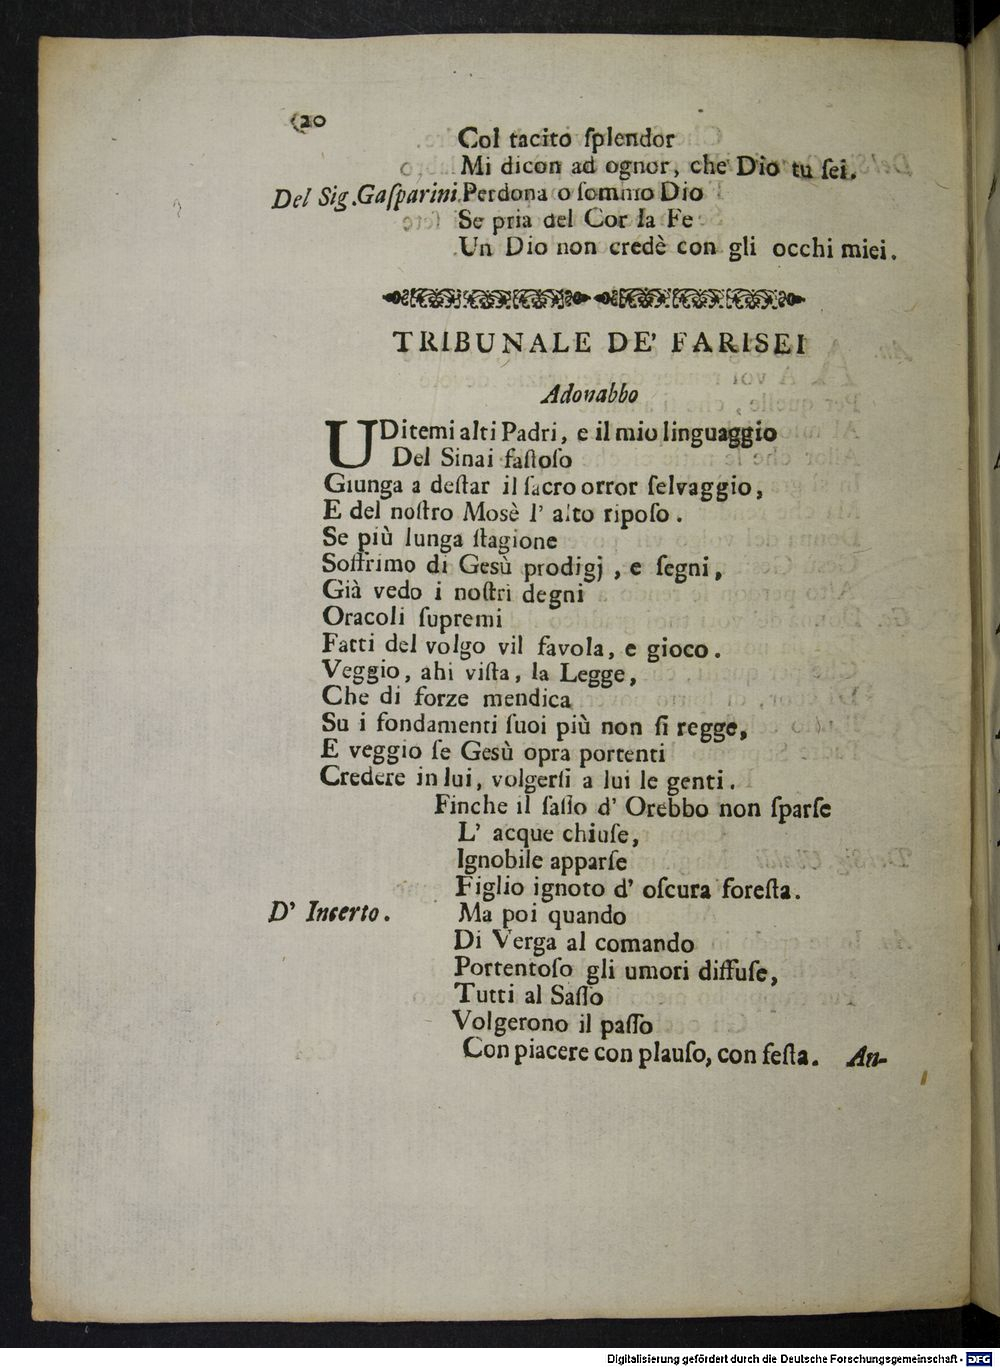 (20
Col tacito ſplendor
Mi dicon ad ognor, che Dio tu ſei.
Del Sig. Gaſparini. Perdona o ſommo Dio
Se pria del Cor la Fe
Un Dio non credè con gli occhi miei.
TRIBUNALE DE' FARISEI
Adonabbo
UDitemi alti Padri, e il mio linguaggio
Del Sinai faſtoſo
Giunga a deſtar il ſacro orror ſelvaggio,
E del noſtro Mosè l' alto ripoſo.
Se più lunga ſtagione
Soffrimo di Gesù prodigj, e ſegni,
Già vedo i noſtri degni
Oracoli ſupremi
Fatti del volgo vil favola, e gioco.
Veggio, ahi viſta, la Legge,
Che di forze mendica
Su i fondamenti ſuoi più non ſi regge,
E veggio ſe Gesù opra portenti
Credere in lui, volgerſi a lui le genti.
Finche il ſaſſo d' Orebbo non ſparſe
L' acque chiuſe,
Ignobile apparſe
Figlio ignoto d' oſcura foreſta.
D' Incerto. Ma poi quando
Di Verga al comando
Portentoſo gli umori diffuſe,
Tutti al Saſſo
Volgerono il paſſo
Con piacere con plauſo, con feſta. An-
Digitalisierung gefördert durch die Deutsche Forschungsgemeinschaft - DFG